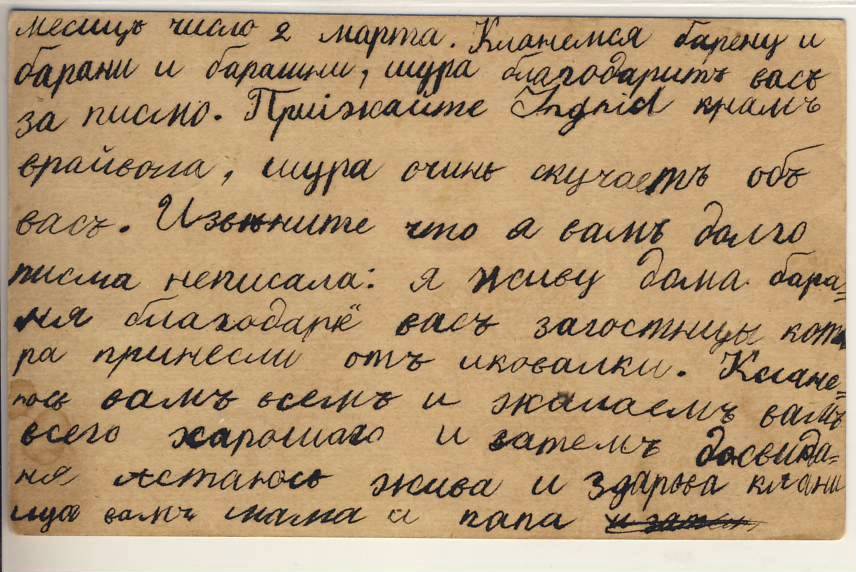 месицъ число 2 марта. Кланемся барену и
барани и барашни, шура благодаритъ васъ
за писмо. Приіжайте Ingrid кнамъ
врайвола, шура очинь скучаетъ объ
васъ. Извините что я вамъ долго
писма неписала: я живу дома. бара=
ня благодарё васъ загостнцы кот
ра принесли отъ иковалки. Клане=
юсь вамъ всемъ и жилаемъ вамъ
всего харошаго и затемъ досвида=
ня астаюсь жива и здарова клани
ица вамъ мама и папа